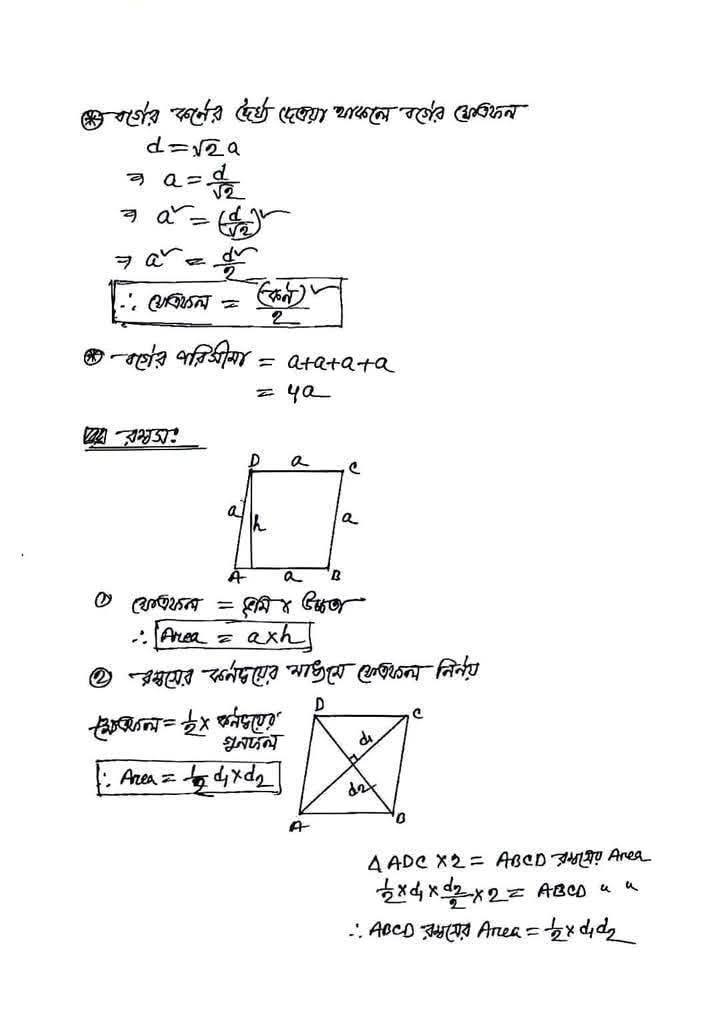 ⊛ বর্গের কর্ণের দৈর্ঘ্য দেওয়া থাকলে বর্গের ক্ষেত্রফল
d = √2 a
⇒ a = d/√2
⇒ a² = (d/√2)²
⇒ a² = d²/2
∴ ক্ষেত্রফল = (কর্ণ)²/2
⊛ বর্গের পরিসীমা = a+a+a+a
= 4a
রম্বস:
D a C
a h a
A a B
① ক্ষেত্রফল = ভূমি × উচ্চতা
∴ Area = a×h
② রম্বসের কর্ণদ্বয়ের মাধ্যমে ক্ষেত্রফল নির্ণয়
ক্ষেত্রফল = 1/2 × কর্ণদ্বয়ের
গুনফল
∴ Area = 1/2 d₁×d₂
D C
d₁
d₂
A B
Δ ADC ×2 = ABCD রম্বসের Area
1/2 × d₁ × d₂/2 × 2 = ABCD " "
∴ ABCD রম্বসের Area = 1/2 × d₁d₂